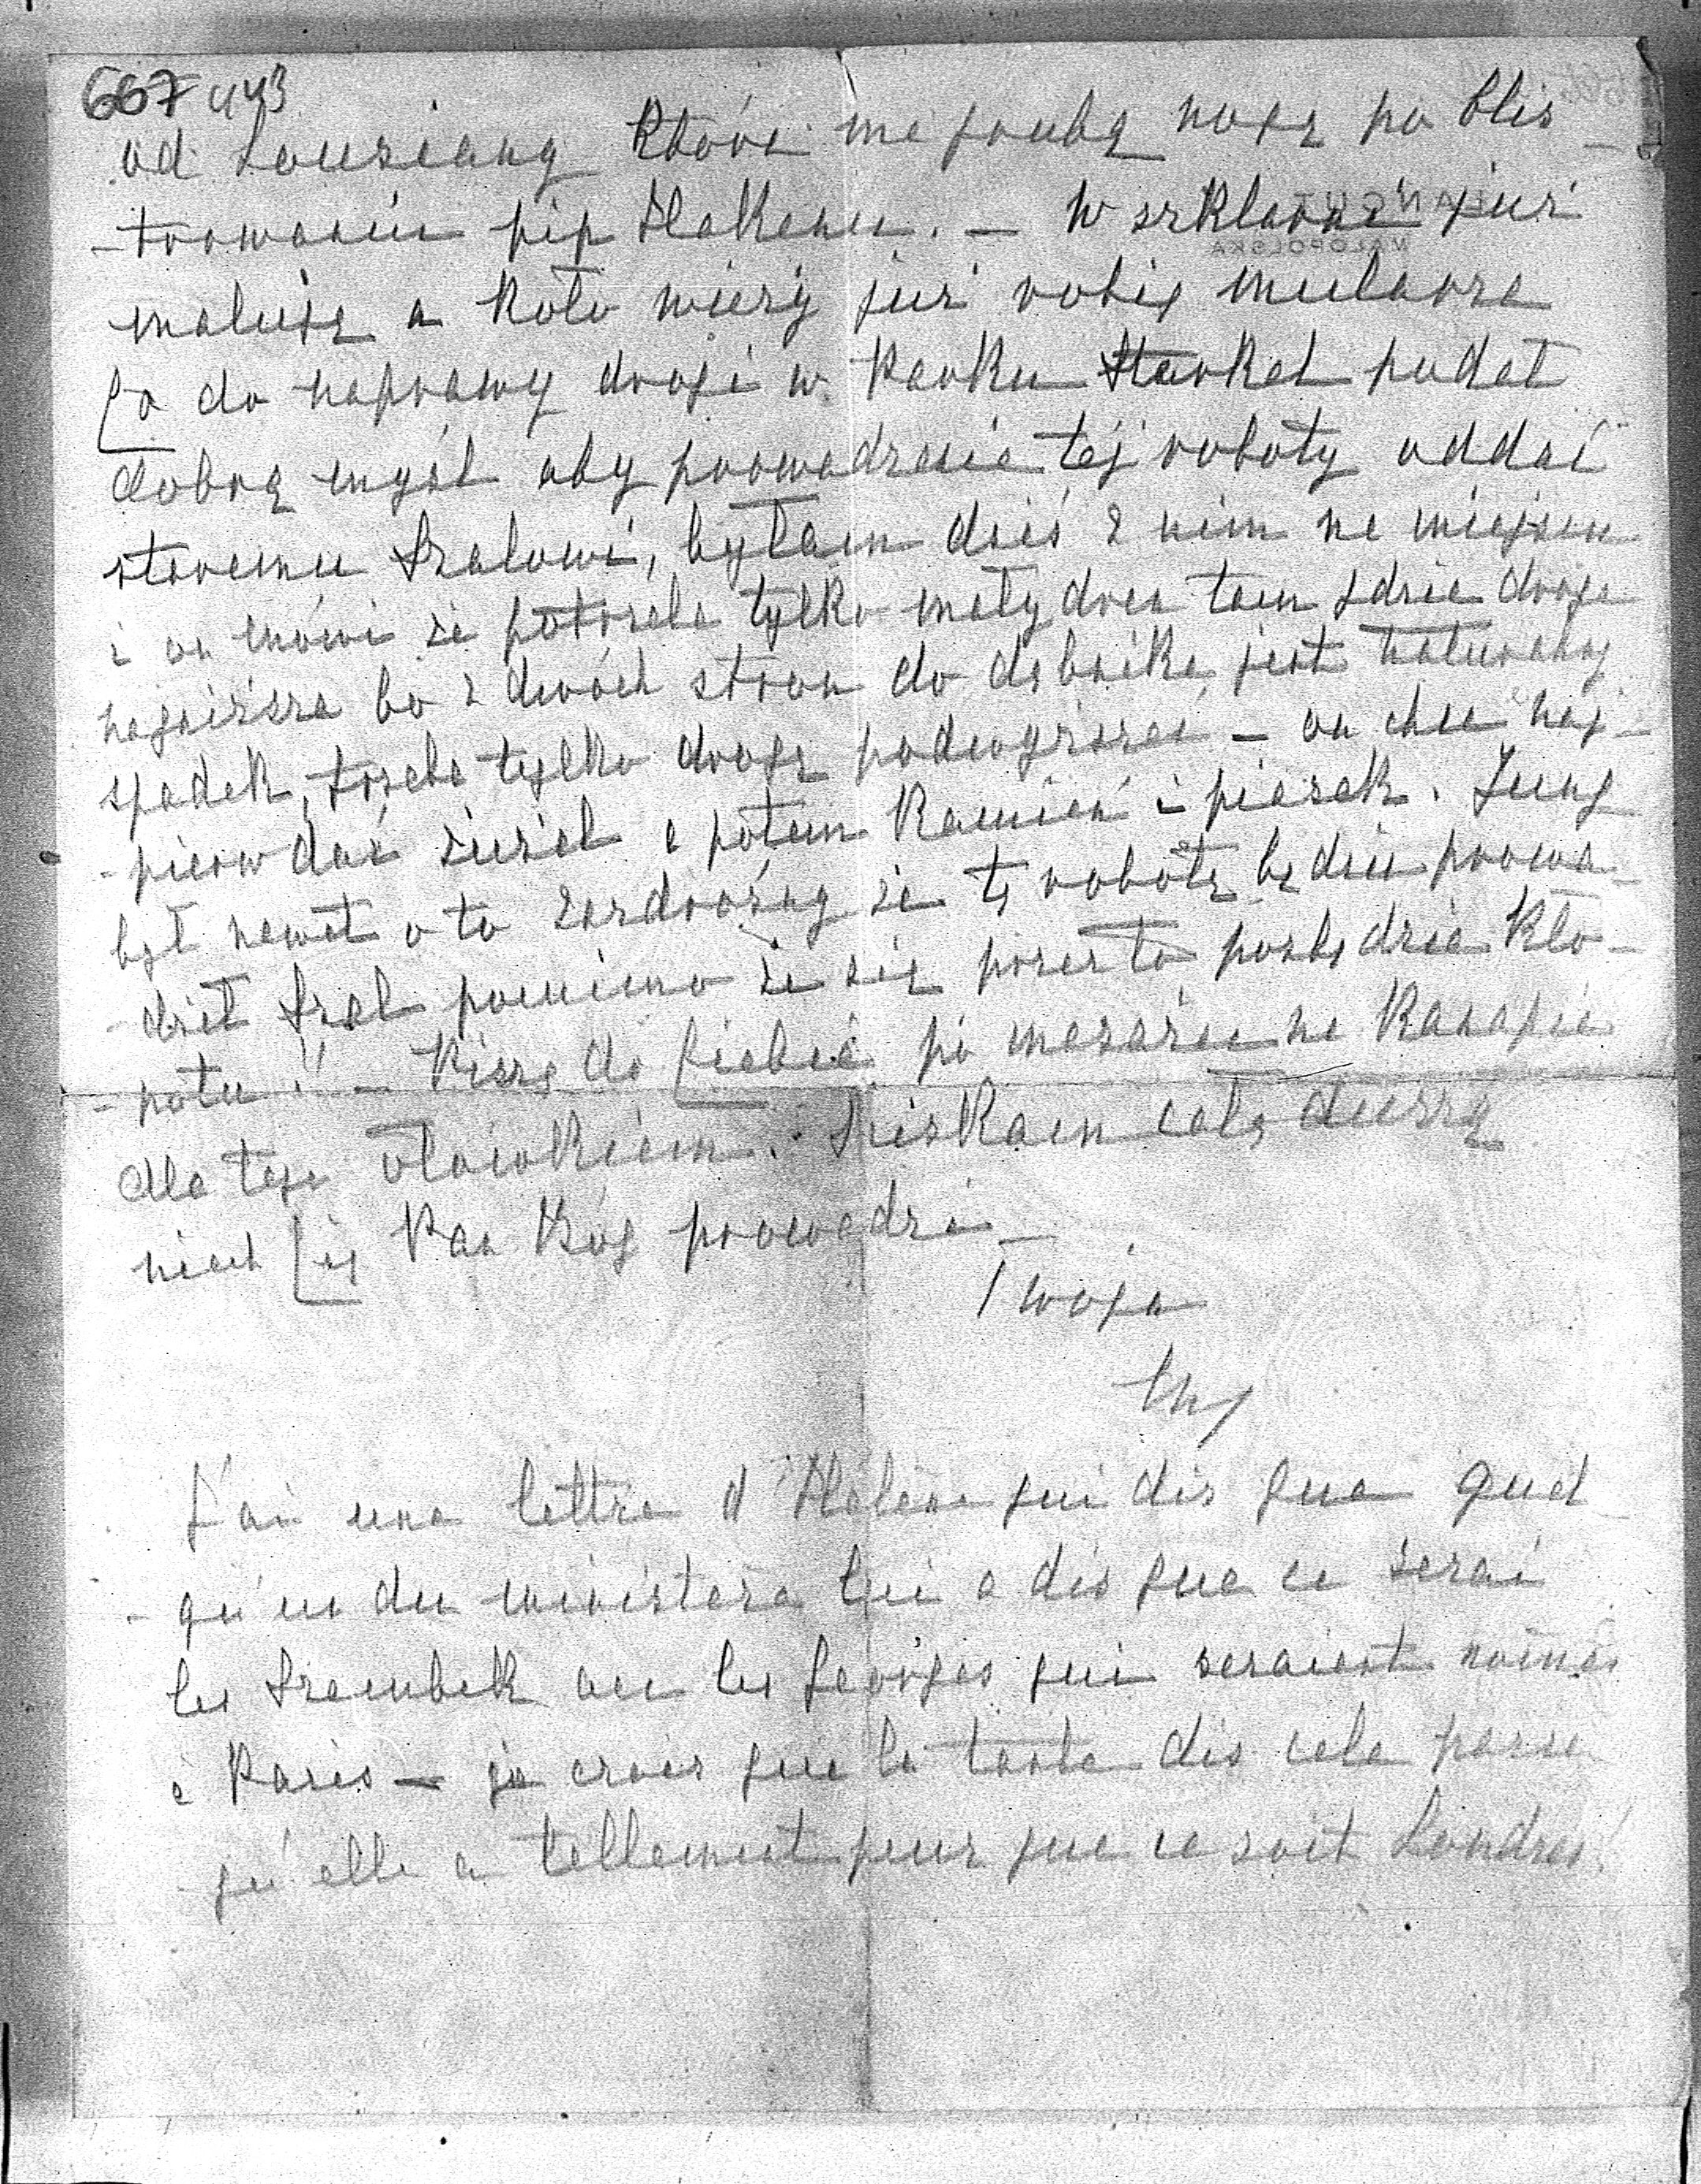 667 443
od Louisiany która ma grubą nogę po blis
-trowaniu pip Hakenu. — W szklarni już
malują a koło wieży już robią mularze
Co do naprawy drogi w Parku Starkel podał
dobrą myśl aby prowadzenie tej roboty oddać
staremu Szalowi, byłam dziś z nim na miejscu
i on mówi że potrzeba tylko mały dren tam gdzie droga
najniższa bo z dwóch stron do dębnika jest naturalny
spadek, trzeba tylko drogę podwyższać — on chce naj-
-pierw dać żużel a potem Kamień i piasek. Jung
był nawet o to zazdrosny że tę robotę będzie prowa-
-dził Szal pomimo że się przez to pozbędzie Kło-
-potu!! — Piszę do Ciebie po masażu na Kanapie
dla tego ołówkiem. Sciskam całą duszą
niech Cię Pan Bóg prowadzi —
Twoja
J'ai une lettre d'Hélène qui dis que quel
-qu'un du ministere lui a dis que ce serai
les Szembek ou les Georges qui seraient només
à Paris — je crois que la tante dis cela parce
qu'elle a tellement peur que ce soit Londres!
ŁAŃCUT
MAŁOPOLSKA